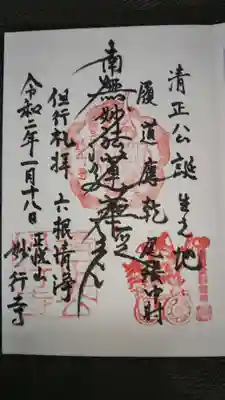 清正公誕生之地
履道應乾 尾張中村
南無妙法蓮華経
但行礼拝 六根清浄
令和二年一月十八日 正悦山 妙行寺